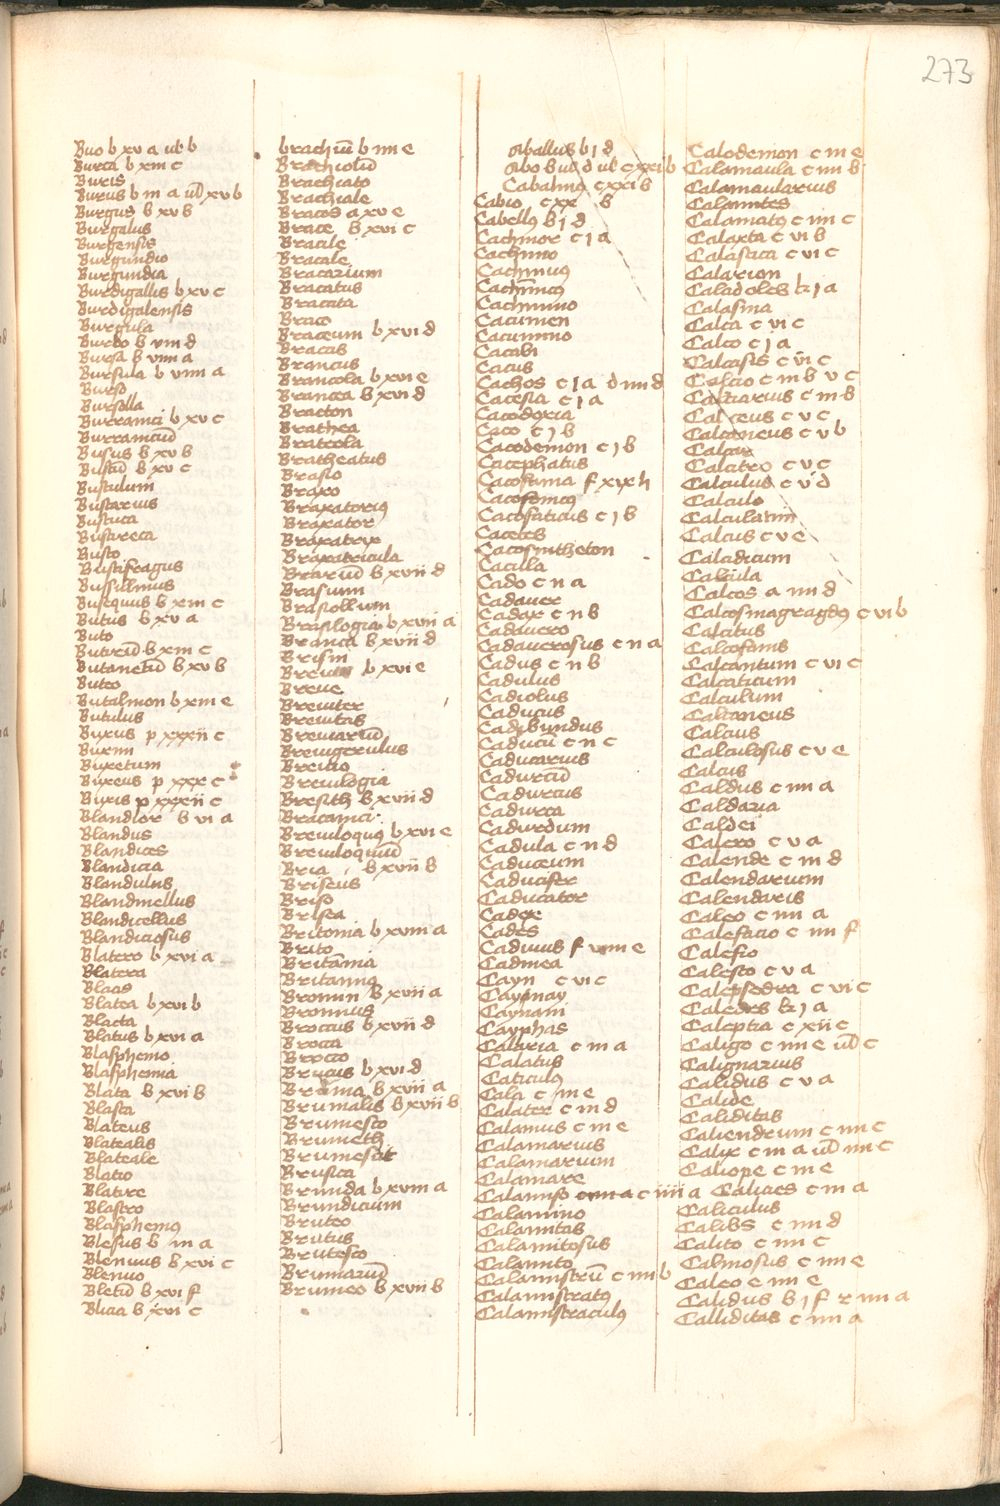 273
Buo b xv a ub b
Burca b xiii c
Buris
Burus b iii a ul xv b
Burgus b xv b
Burgalus
Burgensis
Burgundio
Burgundia
Burdigallis b xv c
Burdigalensis
Burgula
Burdo b viii d
Bursa b viiii a
Bursula b viiii a
Burso
Bursella
Burranici b xv c
Burranicū
Busus b xv b
Bustū b xv c
Bustulum
Bustarius
Bustuca
Bustareca
Busto
Bustifragus
Bussillinus
Busequus b xiii c
Butus b xv a
Buto
Butirū b xiii c
Butanetū b xv b
Buteo
Butalmon b xiii e
Butulus
Buxus p xxxii c
Buxim
Buxetum
Buxeus p xxx c
Buxis p xxxii c
Blandior b vi a
Blandus
Blandices
Blandicia
Blandulus
Blandinellus
Blandicellus
Blandiciosus
Blatero b xvi a
Blatera
Blaas
Blatea b xvi b
Blacta
Blatus b xvi a
Blasphemo
Blasphemia
Blata b xvi b
Blasta
Blateus
Blatealis
Blateale
Blatio
Blatire
Blastro
Blasphemꝯ
Blesus b iii a
Blennus b xvi c
Blenno
Bletū b xvi f
Blicaa b xvi c
brachiū b iiii e
Brachiolū
Brachiato
Brachiale
Bracos a xv e
Brace b xvi c
Bracile
Bracale
Bracarium
Bracatus
Bracata
Braco
Braceum b xvi d
Bracus
Brancus
Brancola b xvi e
Brancea b xvi d
Bracton
Brathea
Brateola
Bratheatus
Brasio
Braxo
Braxatoriꝯ
Braxator
Braxatrix
Braxatricula
Brariū b xvii d
Brasium
Brasiollum
Brasilogia b xvii a
Branca b xvii d
Brisin
Brevis b xvi e
Breve
Breviter
Brevitas
Breviariū
Brevigerulus
Brevio
Brevilogia
Bresith b xvii d
Bracanici
Breviloquꝯ b xvi e
Breviloquiū
Bria b xvii b
Briseus
Briso
Brisea
Britonia b xviii a
Brito
Britānia
Britannꝯ
Bromin b xvii a
Bromius
Broccus b xvii d
Brocca
Brocco
Brucus b xvi d
Bruma b xvii a
Brumalis b xvii b
Brumesco
Brumeth
Brumescit
Brusica
Brunda b xviii a
Brundicium
Bruteo
Brutus
Brutesco
Brumariū
Brumeo b xvii b
aballus b j d
abo b vii d ul c xxi b
Cabalinꝯ c xxi b
Cabio c xx b
Cabellꝯ b j d
Cachinor c j a
Cachinno
Cachinnꝯ
Cachinnꝯ
Cachinnino
Cacumen
Cacumino
Cacabi
Cacus
Cachos c j a d iiii d
Cacesia c j a
Cacodoxia
Caco c j b
Cacodemon c j b
Cacephatus
Cacofamia f xix h
Cacofonicꝯ
Cacosiacius c j b
Caceres
Cacosintheton
Cacilla
Cado c ii a
Cadaver
Cadax c ii b
Cadavero
Cadaverosus c ii a
Cadus c ii b
Cadulus
Cadiolus
Caducus
Cadibundus
Caducū c ii c
Caducarius
Cadurcū
Cadurcus
Cadurca
Cadurdum
Cadula c ii d
Caduceum
Caducifer
Caducator
Cadex
Cades
Cadmus f viiii e
Cadmea
Cayn c vi c
Caymay
Caynam
Cayphas
Calaria c iii a
Calatus
Caticulꝯ
Cala c iiii e
Calater c iii d
Calamus c iii e
Calamarius
Calamarium
Calamare
Calamiso c iiii a
Calamino
Calamitas
Calamitosus
Calamito
Calamistrū c iiii b
Calamistratꝯ
Calamistraculꝯ
Calodemon c iii e
Calamaula c iiii b
Calamaularius
Calamites
Calamatꝯ c iiii c
Calaxta c vi b
Calastica c vi c
Calarion
Caladoles k j a
Calasma
Calca c vi c
Calco c j a
Calcasis c vi c
Calcio c iii b v c
Calciarius c iii d
Calceus c v c
Calcaneus c v b
Calcar
Calcitro c v c
Calculus c v d
Calculo
Calculatim
Calcus c v e
Calcidicum
Calcula
Calcos a iiii d
Calcosmaragdꝯ c vi b
Calcitus
Calcofanus
Calcantum c vi c
Calcaticum
Calculum
Calcaneus
Calcius
Calculosus c v e
Calcus
Caldus c iiii a
Caldaria
Caldei
Calero c v a
Calende c iii d
Calendarium
Calendaris
Caleo c iiii a
Calefacio c iiii f
Calefio
Calesco c v a
Calepsedra c vi c
Caledes k j a
Caleptra c xii c
Caligo c iiii e ul c
Calignarius
Calidus c v a
Calide
Caliditas
Caliendrum c iiii c
Calix c iii a ul iiii c
Caliope c iii e
Calices c iii a
Caliculus
Calibs c iiii d
Calito c iiii c
Calmosus c iiii e
Caleo e iiii e
Calidus b j f r iiii a
Calliditas c iiii a